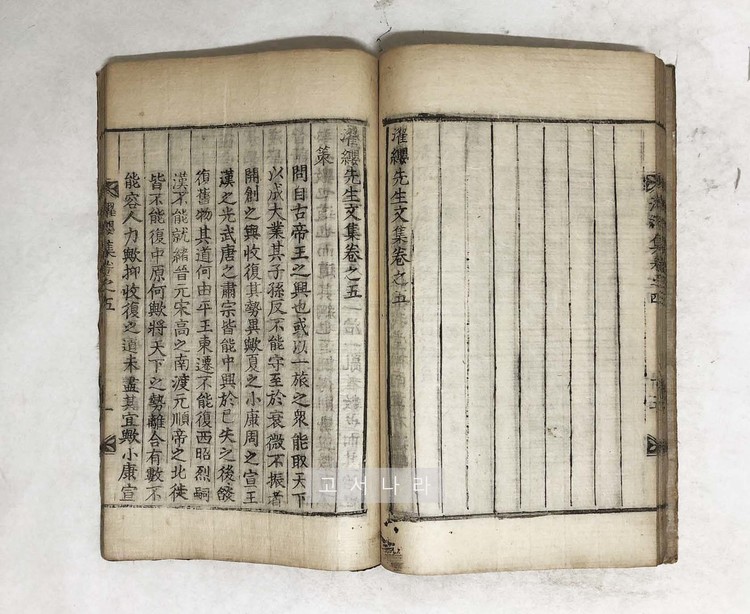 集卷之四
濯纓先生文集卷之五
濯纓先生文集卷之五
策
問自古帝王之興也或以一旅之衆能取天下
以成大業其子孫反不能守至於衰微不振者
開創之興收復其勢異歟夏之小康周之宣王
漢之光武唐之肅宗皆能中興於已失之後
復舊物其道何由平王東遷不能復西昭烈嗣
漢不能就緒晉元宋高之南渡元順帝之北徙
皆不能復中原何歟將天下之勢離合有數不
能容人力歟抑收復之道未盡其宜歟小康宣
濯纓集卷之五
一
고서나라